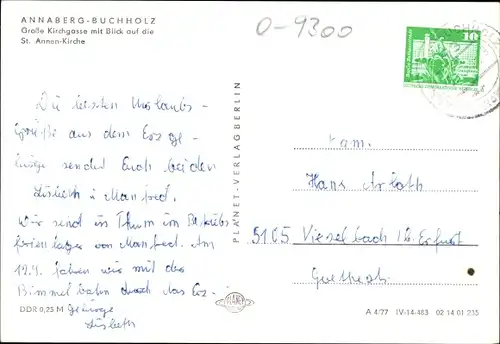 ANNABERG-BUCHHOLZ
Große Kirchgasse mit Blick auf die
St. Annen-Kirche
O-9300
10
Die besten Urlaubs-
grüße aus dem Erzge-
birge sendet Euch beiden
Lisbeth u. Manfred.
Wir sind in Thum im Betriebs
ferienlager von Manfred. Am
19.4. fahren wir mit der
Bimmelbahn durch das Erz-
gebirge
Lisbeth
PLANET-VERLAG BERLIN
Fam.
Hans
5105 Vieselbach ü. Erfurt
Goethestr.
DDR 0,25 M
PLANET
A 4/77 IV-14-483 02 14 01 235